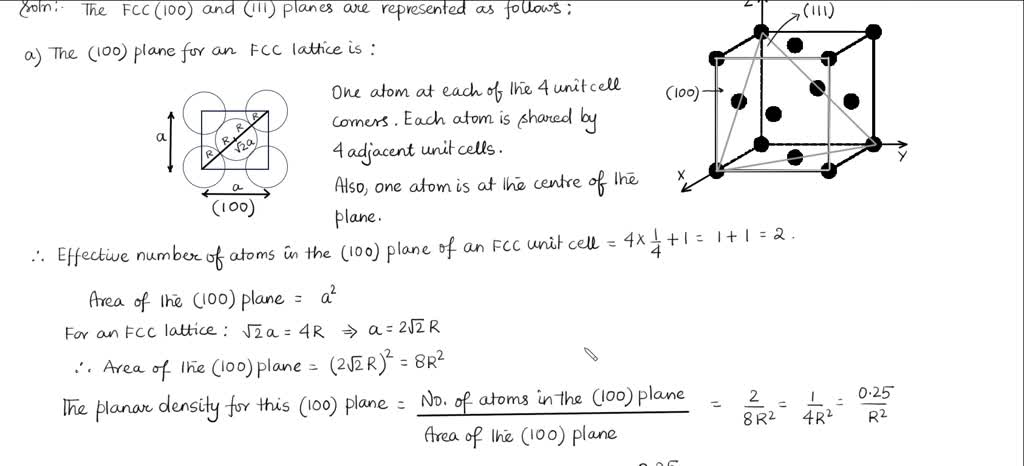 Soln:- The FCC (100) and (111) planes are represented as follows:
a) The (100) plane for an FCC lattice is:
One atom at each of the 4 unit cell
corners. Each atom is shared by
4 adjacent unit cells.
Also, one atom is at the centre of the
plane.
a
R
R
R
R
√2a
a
(100)
Z
(111)
(100)
X
Y
∴ Effective number of atoms in the (100) plane of an FCC unit cell = 4 × 1/4 + 1 = 1 + 1 = 2.
Area of the (100) plane = a²
For an FCC lattice: √2a = 4R ⇒ a = 2√2 R
∴ Area of the (100) plane = (2√2 R)² = 8R²
The planar density for this (100) plane = No. of atoms in the (100) plane / Area of the (100) plane = 2/8R² = 1/4R² = 0.25/R²
0.25